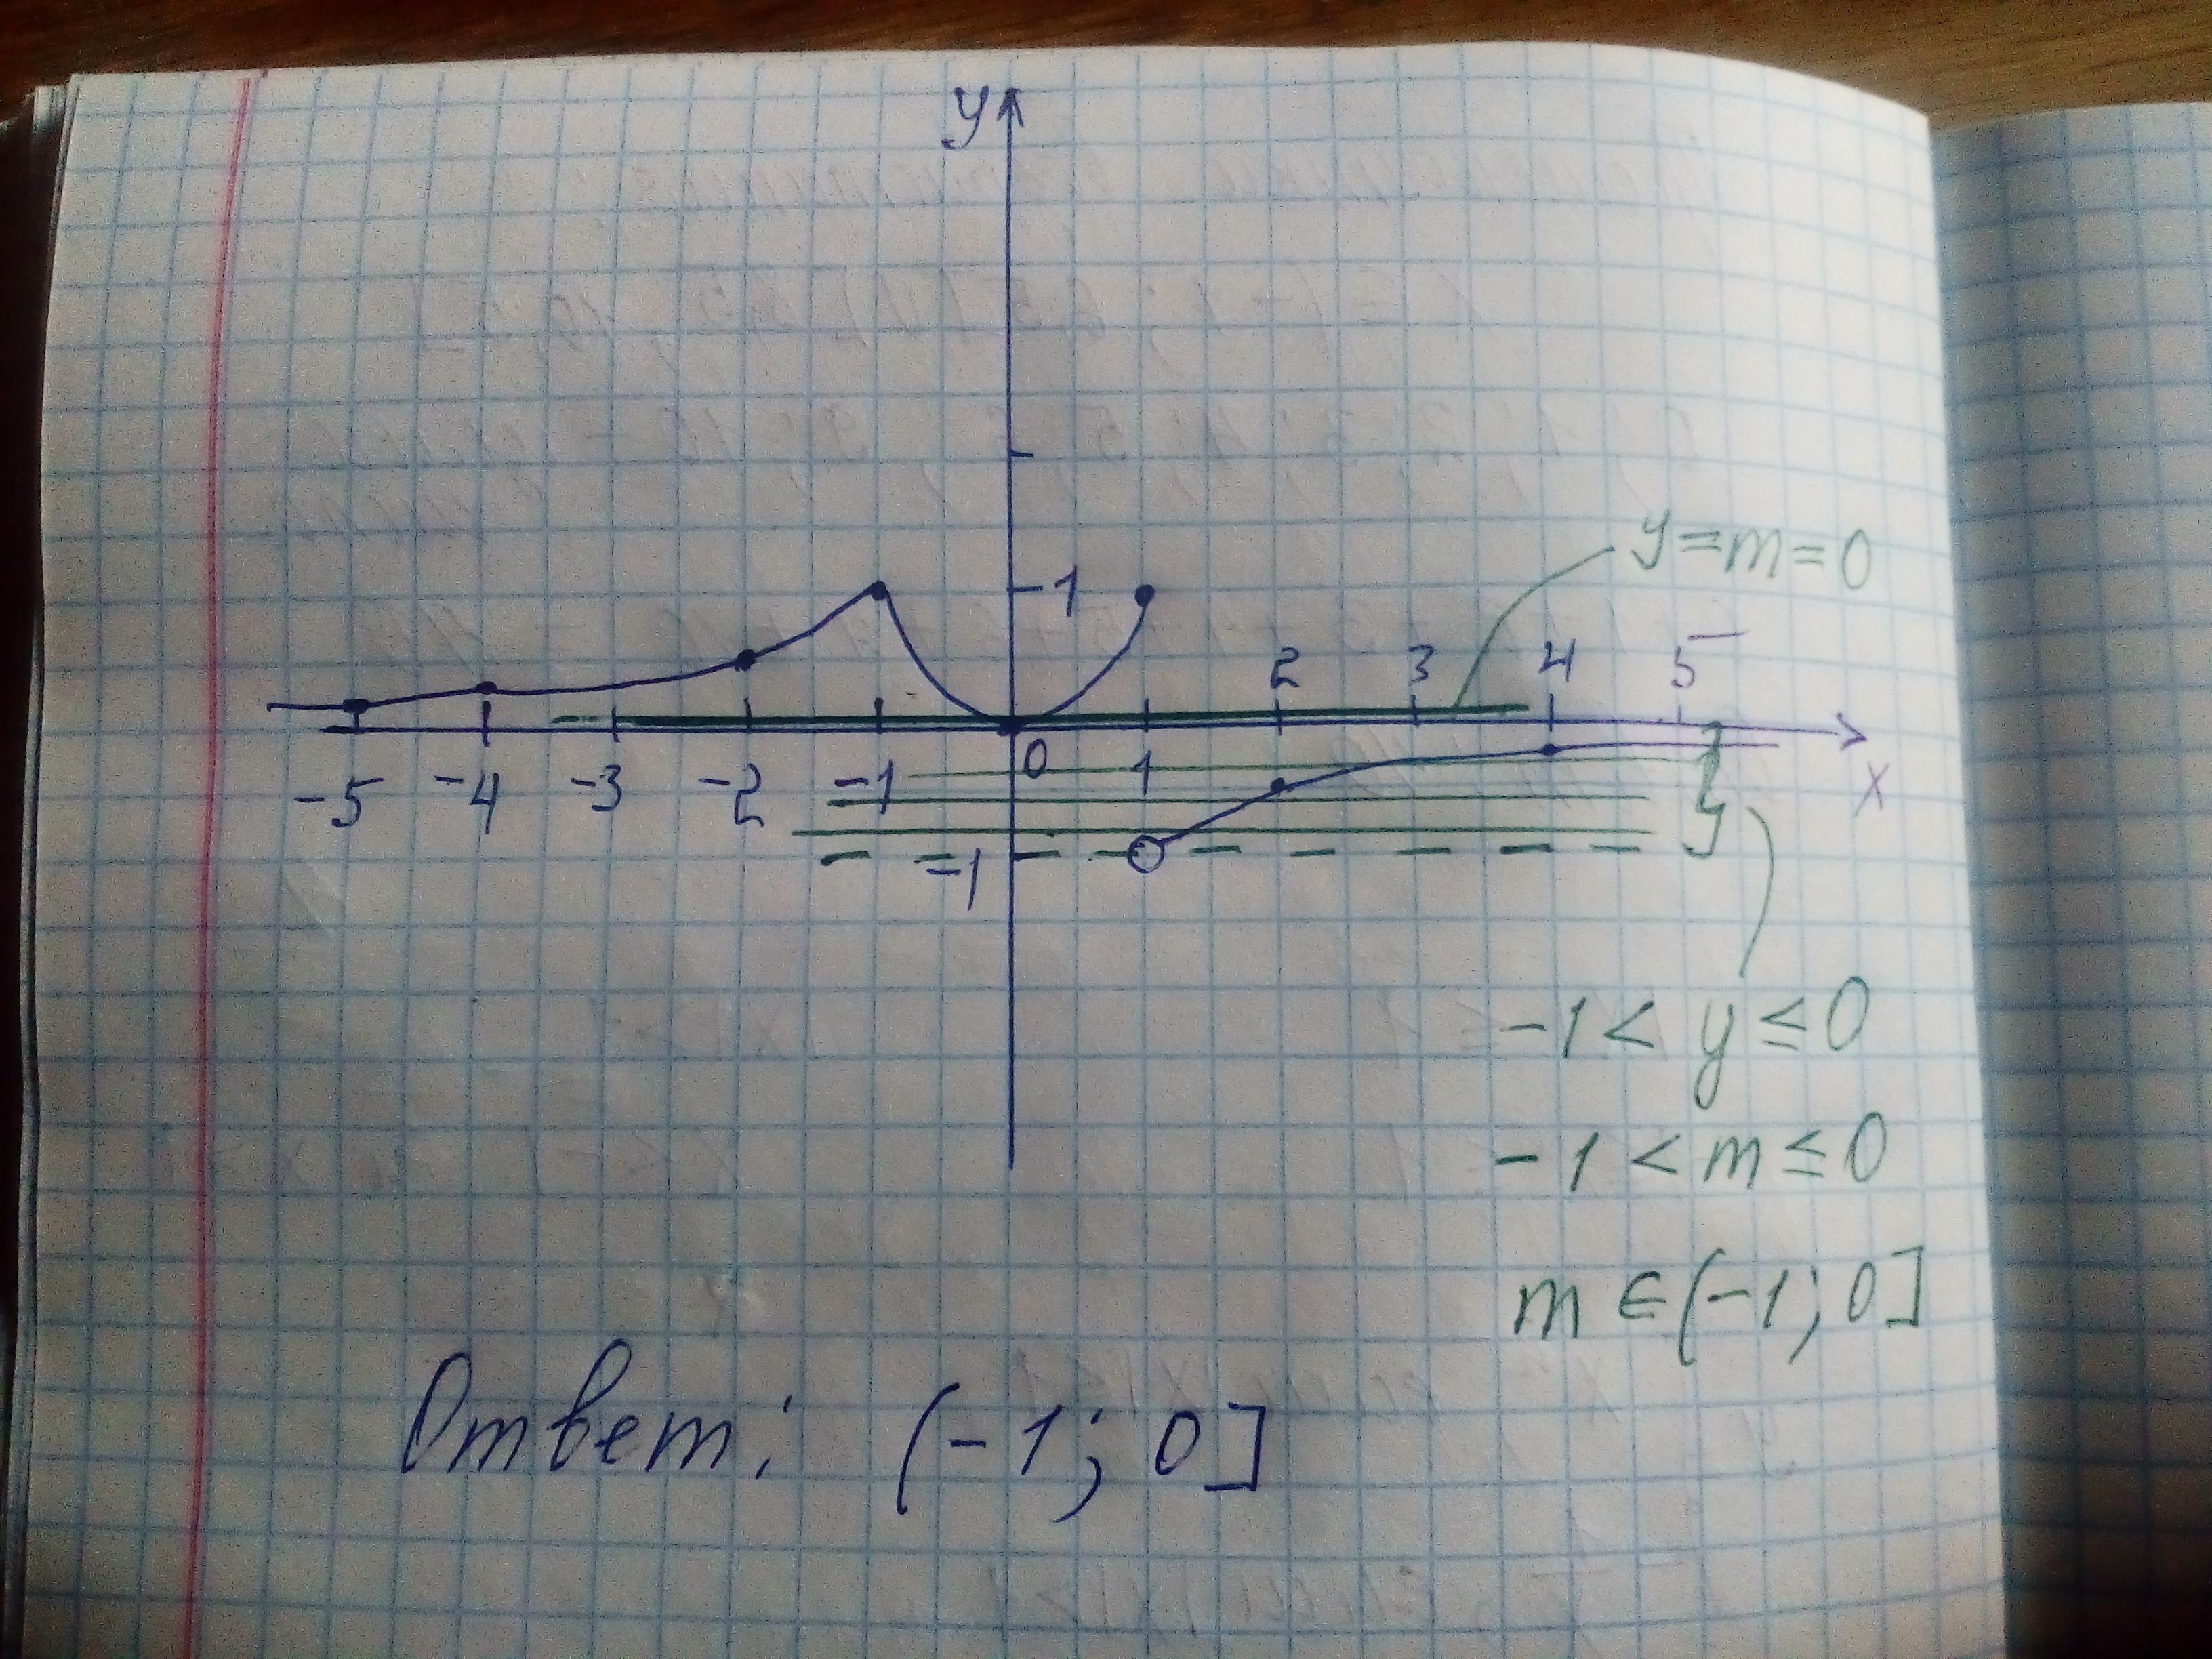 y
1
y=m=0
2 3 4 5
0
-5 -4 -3 -2 -1 1
x
-1
-1 < y ≤ 0
-1 < m ≤ 0
m ∈ (-1; 0]
Ответ: (-1; 0]